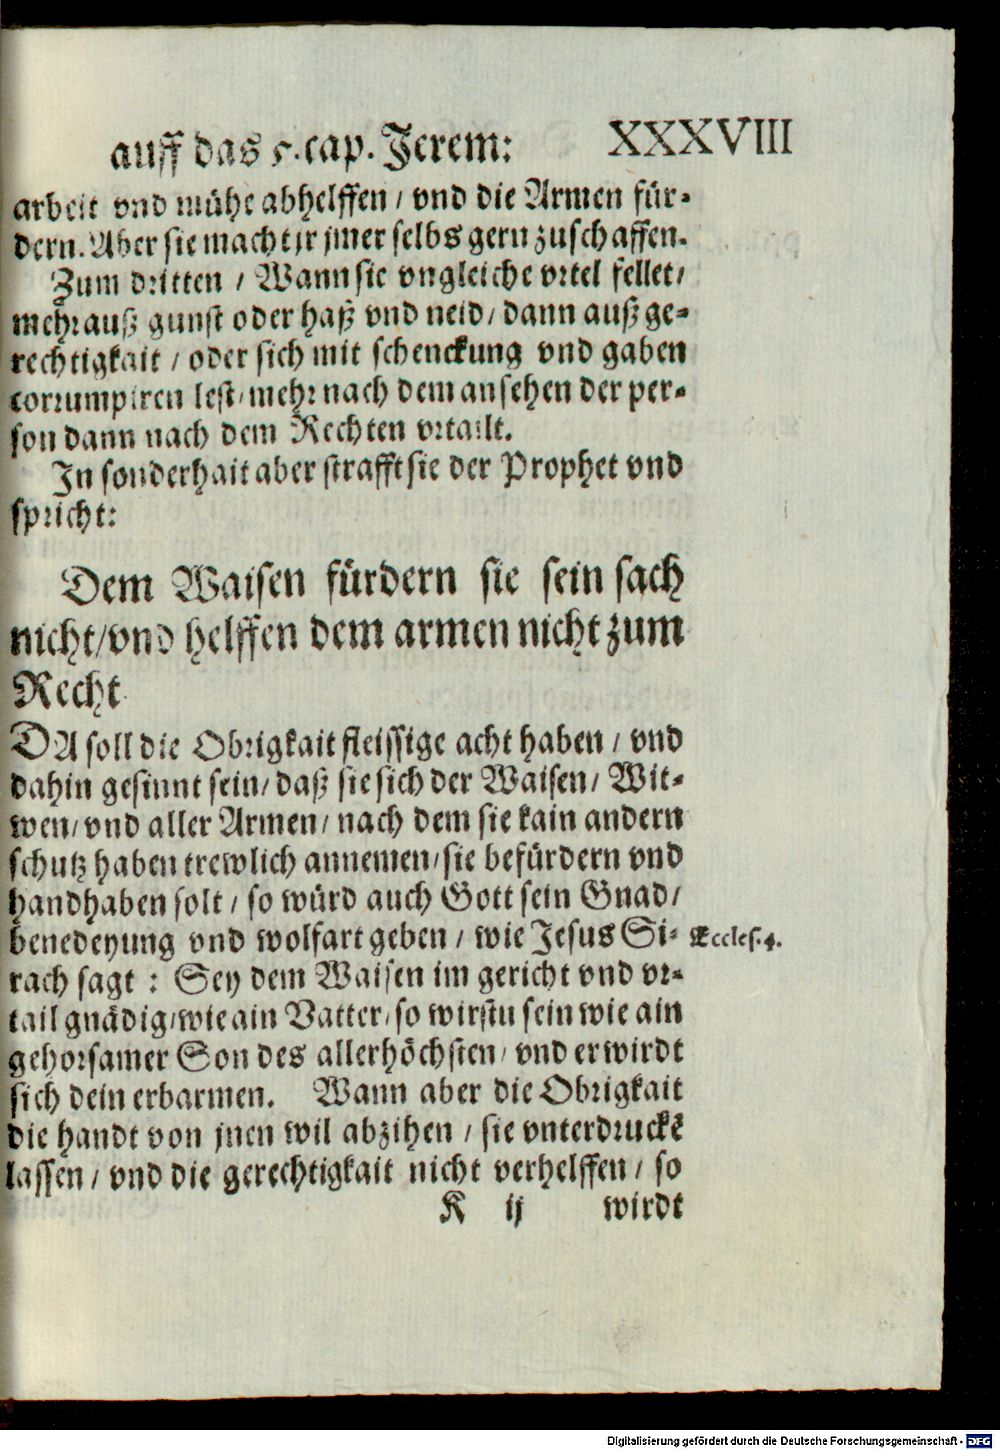 auff das 5. cap. Jerem: XXXVIII
arbeit vnd mühe abhelffen / vnd die Armen für-
dern. Aber sie macht jr jmer selbs gern zuschaffen.
Zum dritten / Wann sie vngleiche vrtel fellet /
mehr auß gunst oder haß vnd neid / dann auß ge-
rechtigkait / oder sich mit schenckung vnd gaben
corrumpiren lest / mehr nach dem ansehen der per-
son dann nach dem Rechten vrtailt.
In sonderhait aber strafft sie der Prophet vnd
spricht:
Dem Waisen fürdern sie sein sach
nicht / vnd helffen dem armen nicht zum
Recht
DA soll die Obrigkait fleissige acht haben / vnd
dahin gesinnt sein / daß sie sich der Waisen / Wit-
wen / vnd aller Armen / nach dem sie kain andern
schutz haben trewlich annemen / sie befürdern vnd
handhaben solt / so würd auch Gott sein Gnad /
benedeyung vnd wolfart geben / wie Jesus Si- Eccles. 4.
rach sagt : Sey dem Waisen im gericht vnd vr-
tail gnädig / wie ain Vatter / so wirstu sein wie ain
gehorsamer Son des allerhöchsten / vnd er wirdt
sich dein erbarmen. Wann aber die Obrigkait
die handt von jnen wil abzihen / sie vnterdruckē
lassen / vnd die gerechtigkait nicht verhelffen / so
K ij wirdt
Digitalisierung gefördert durch die Deutsche Forschungsgemeinschaft - DFG